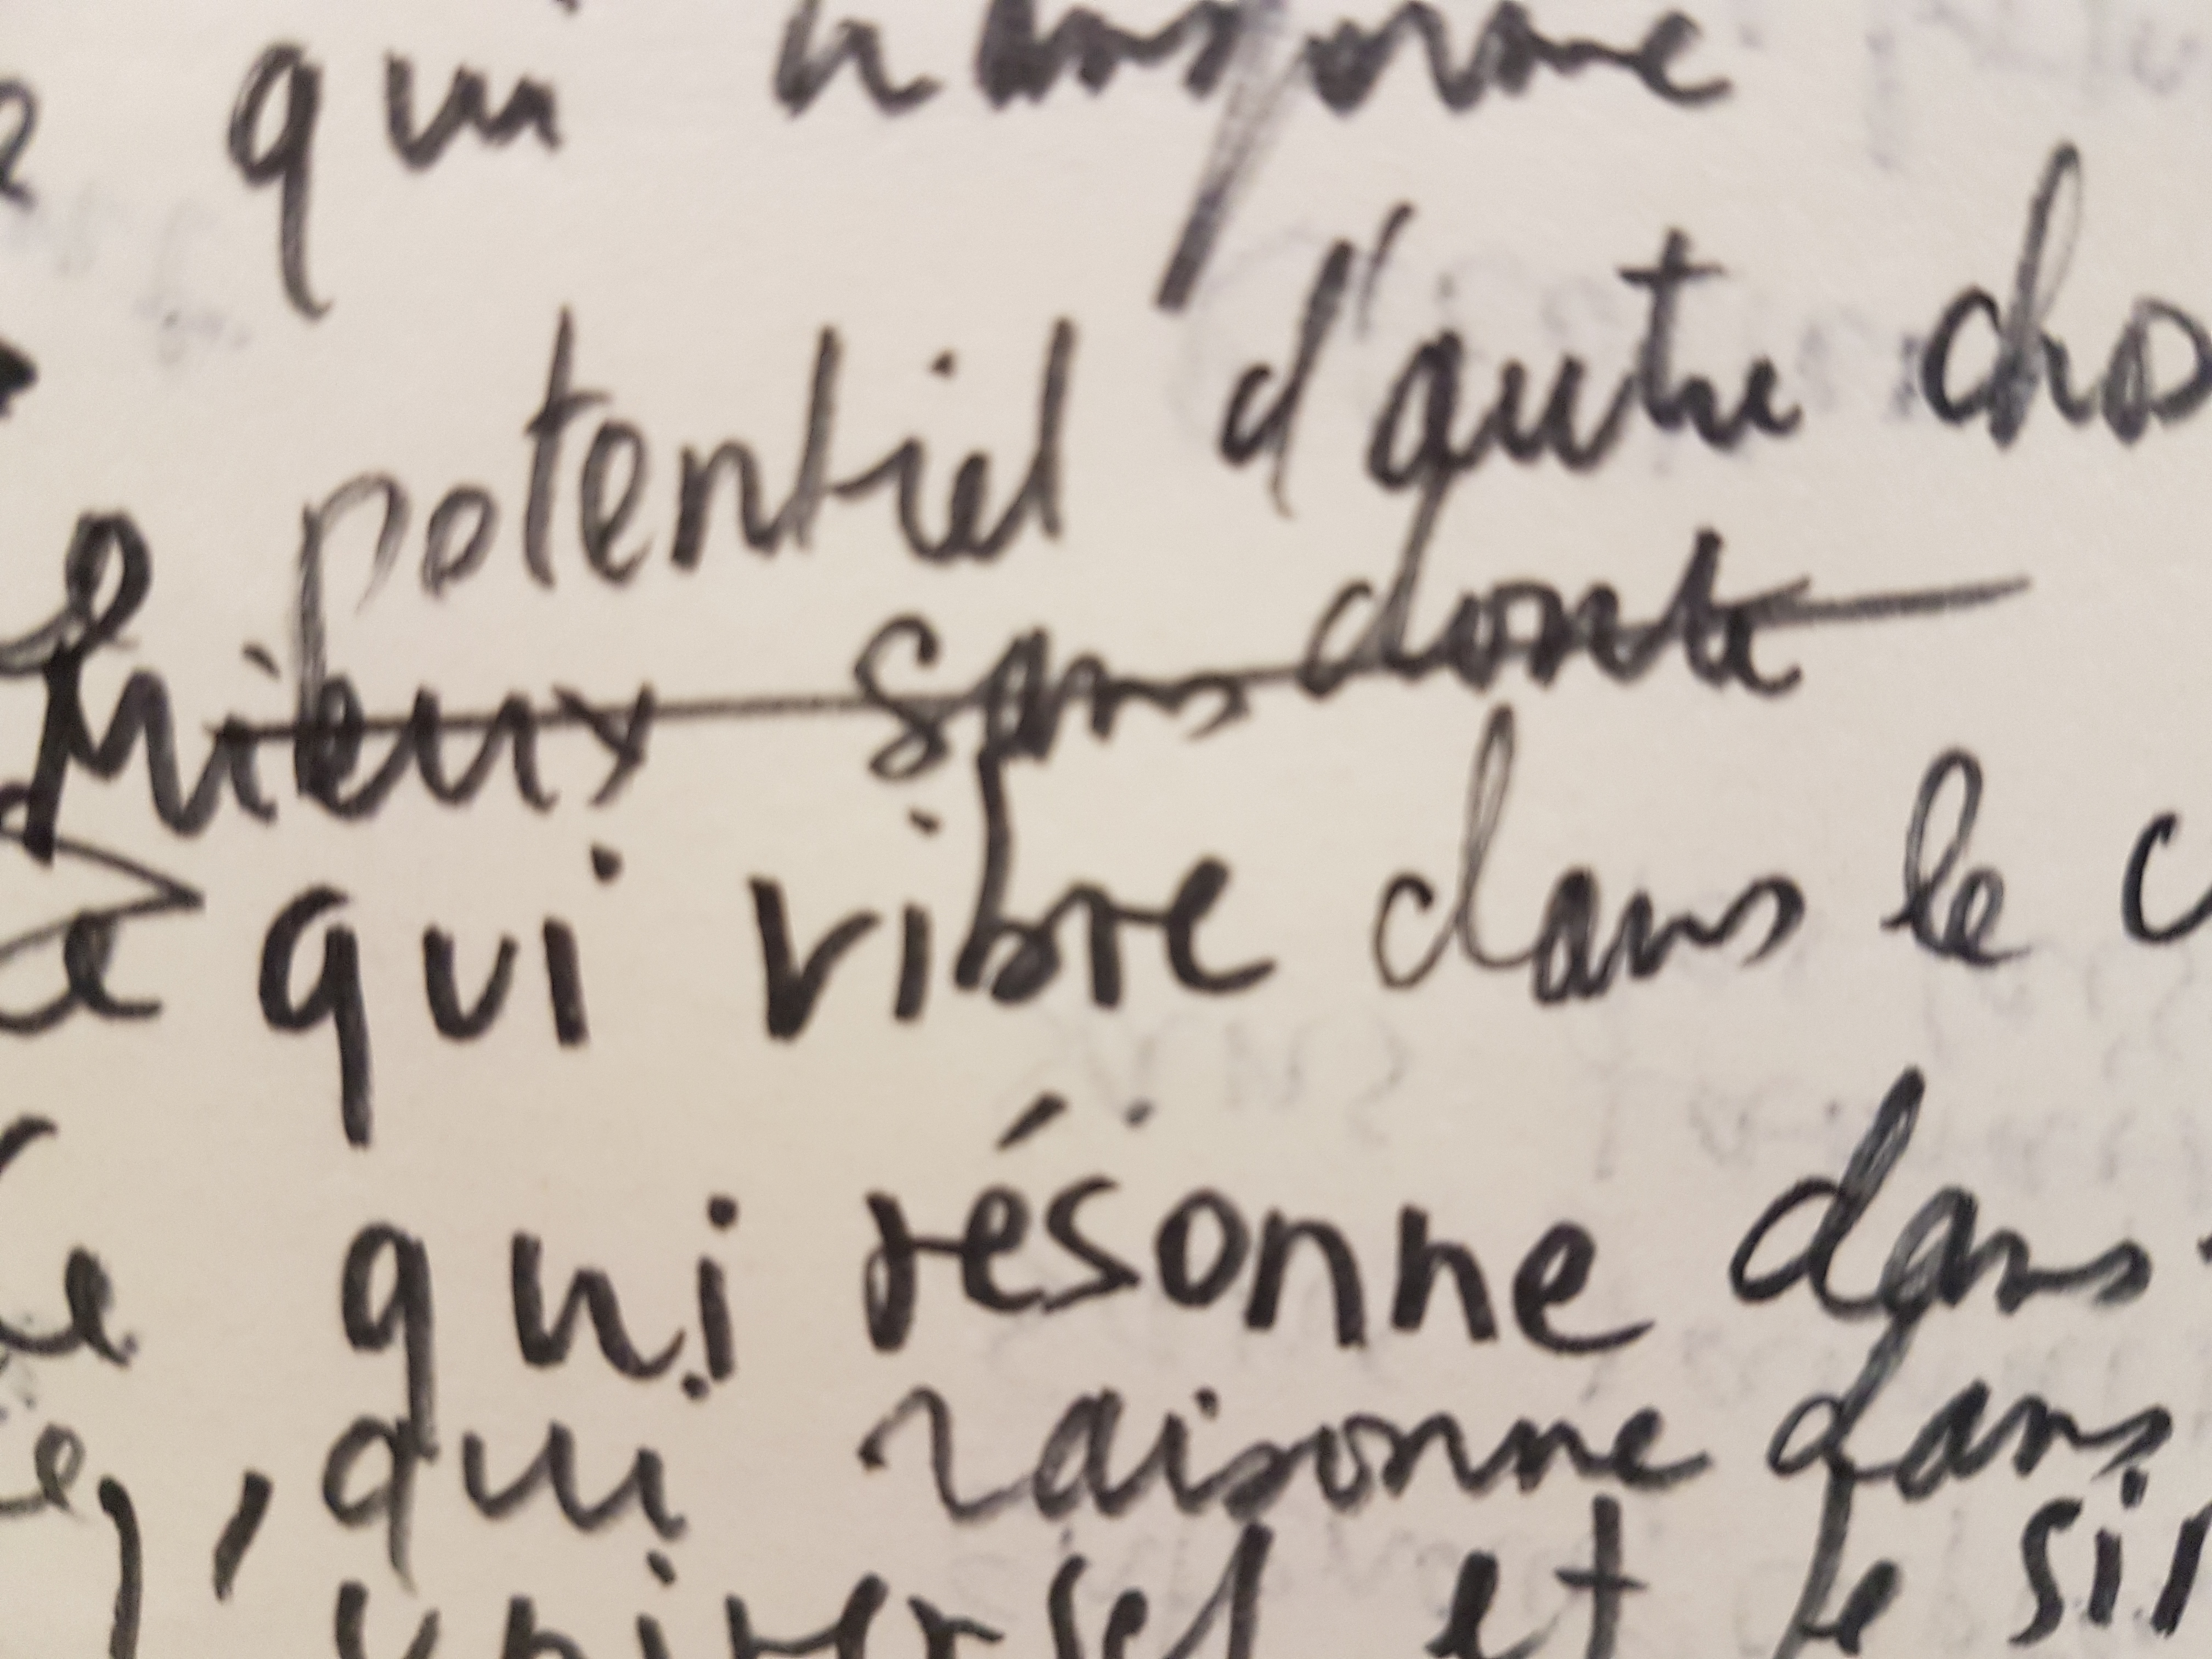 qui transforme
potentiel d'autre cho
mieux sans doute
ce qui vibre dans le
Ce qui résonne dans
, qui raisonne dans
universel et le sil